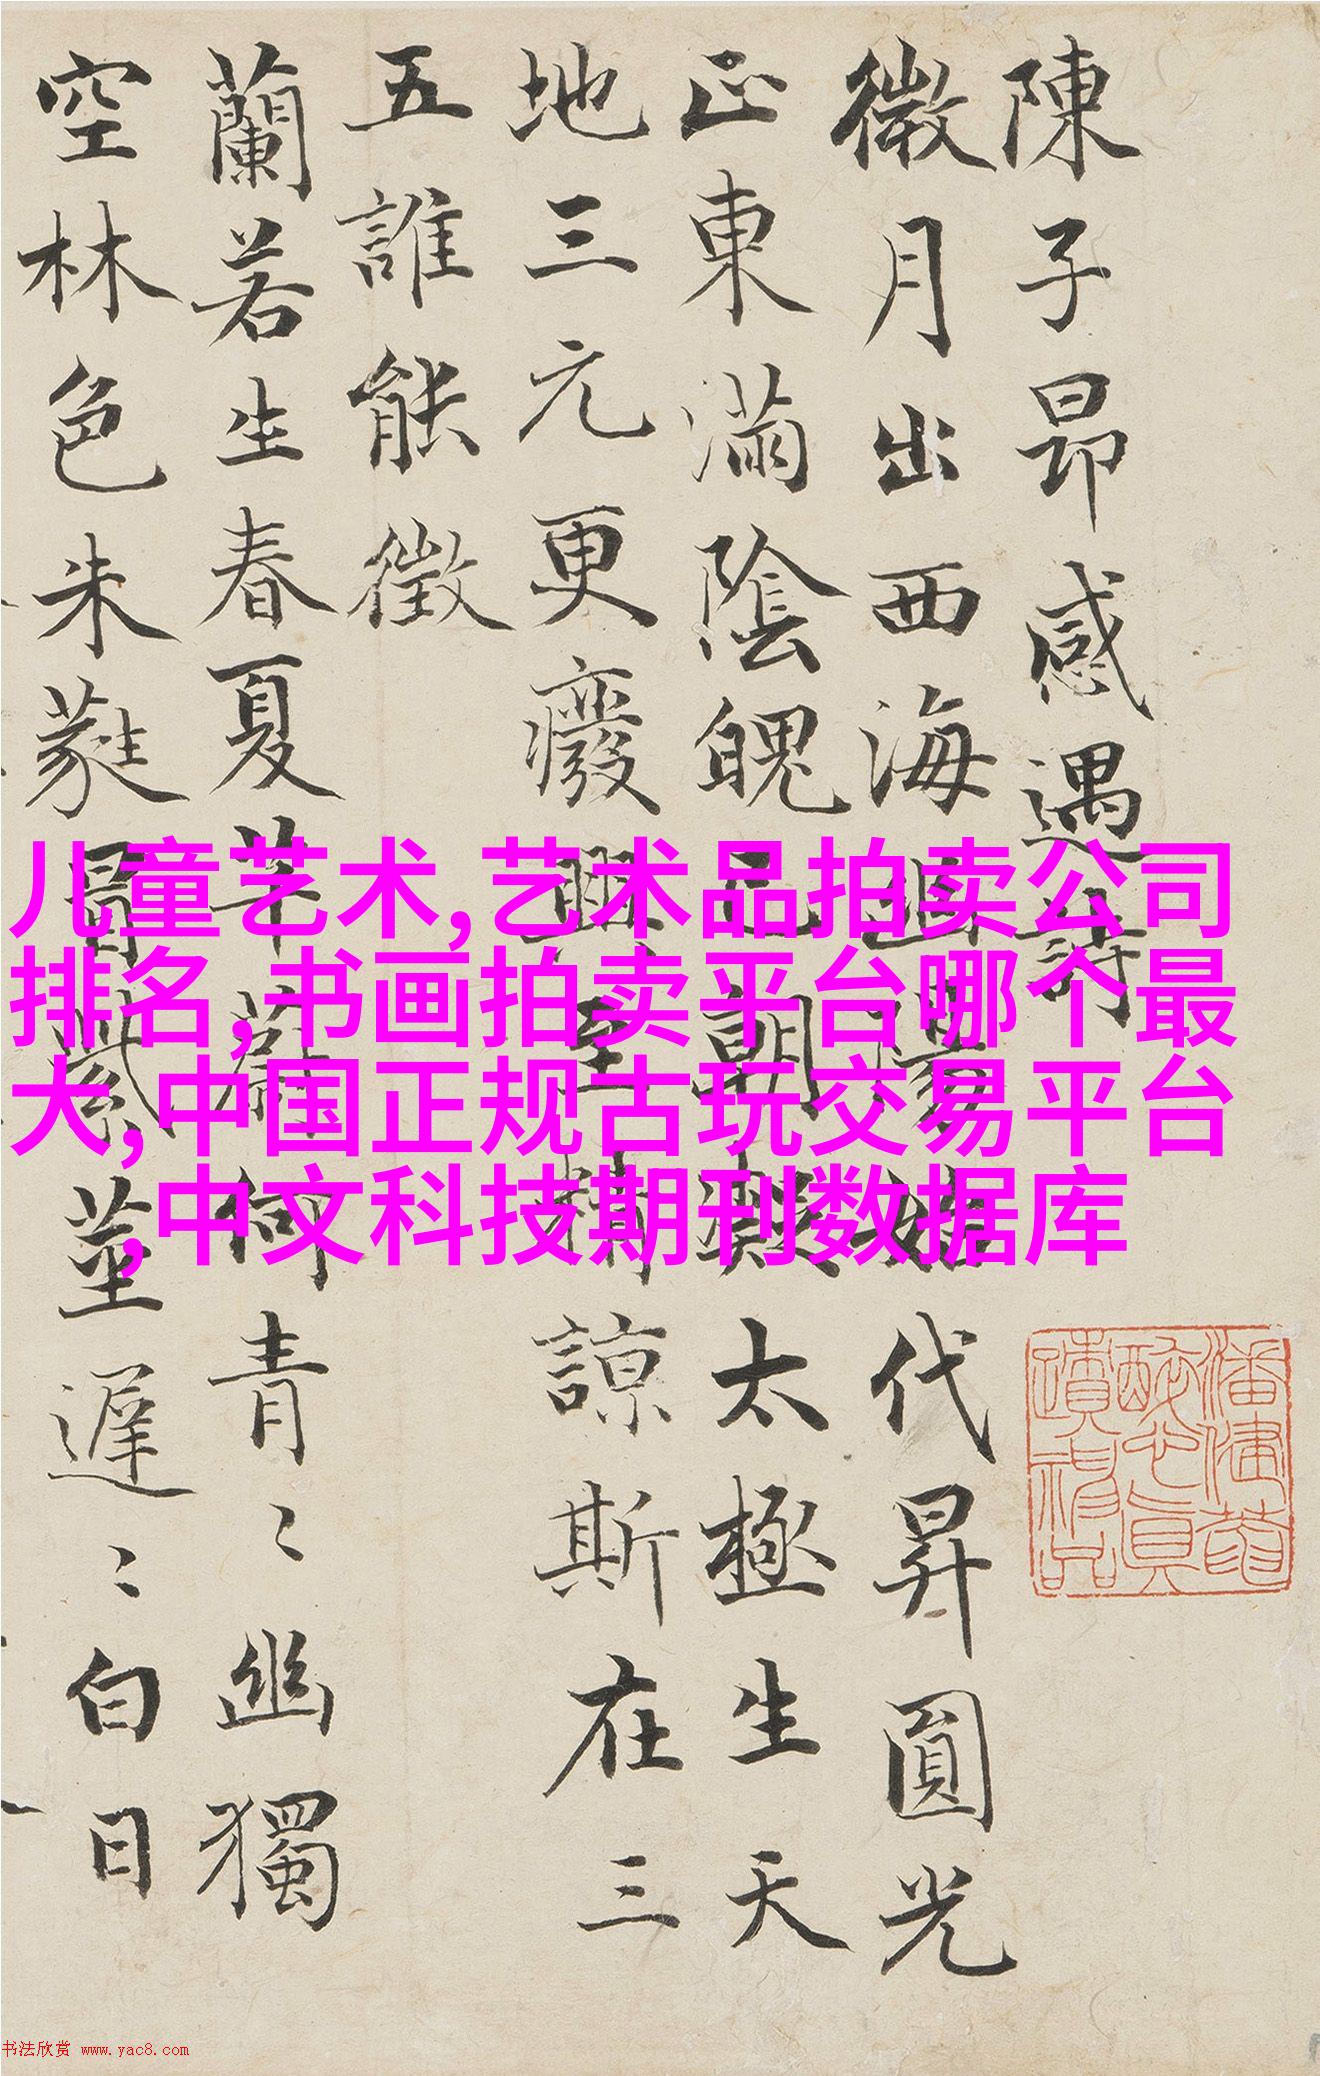 陳子昂感遇詩
微月出西海幽陽始代昇圓光
正東滿陰魄已朝凝太極生天
地三元更癈興至精諒斯在三
五誰能徵
蘭若生春夏芊蔚何青〻幽獨
空林色朱蕤冒紫莖遲〻白日
儿童艺术,艺术品拍卖公司
排名,书画拍卖平台哪个最
大,中国正规古玩交易平台
,中文科技期刊数据库
书法欣赏 www.yac8.com